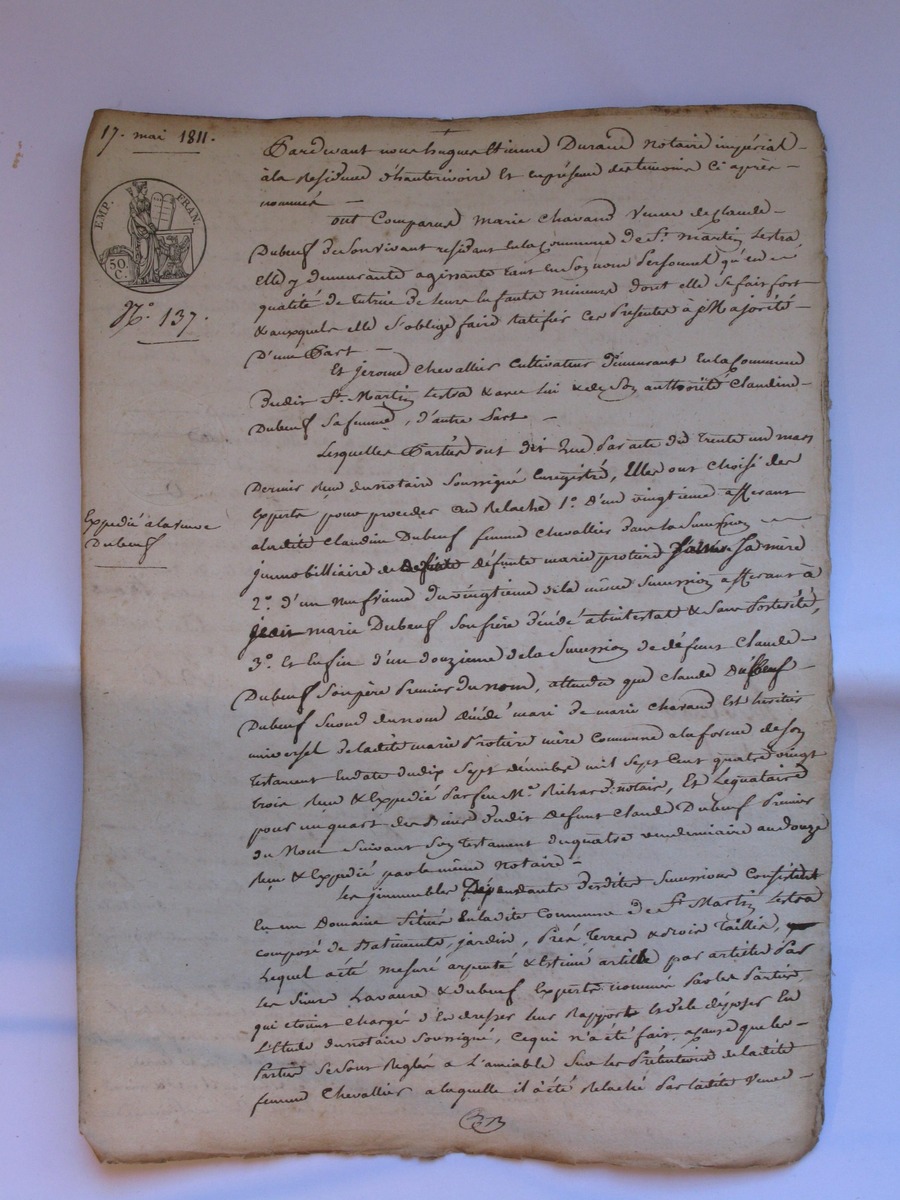 17. mai 1811.
EMP. FRAN.
50 C.
N.° 137.
Expedié à la veuve
Dubeuf
Pardevant nous hugues Etienne Durand Notaire impérial
à la Residence d'hauterivoire Et en présence des temoins Ci après
nommés
ont Comparus marie Chavand Veuve de Claude
Dubeuf de son vivant residant en la Commune de St. martin Lestra
elle y demeurante agissante tant en son nom Personnel qu'en
qualité de tutrice de leurs Enfants mineurs dont elle se fait fort
& auxquels elle s'oblige faire Ratifier ces Presentes à Majorité
D'une Part
Et jerome Chevallier Cultivateur demeurant En la Commune
dudit St. Martin Lestra & avec lui & de son authorité Claudine
Dubeuf sa femme, d'autre Part
Lesquelles Parties ont dit Que Par acte du trente un mars
Dernier Reçu du notaire Soussigné Enregistré, Elles ont choisé des
Experts pour proceder au Relaché 1.° d'un vingtième afferant
à ladite Claudine Dubeuf femme Chevallier dans la Succession
jmmobilliaire de défunte marie protière sa mère
2.° d'un neufvième du vingtième de la même Succession afferant à
jean marie Dubeuf son frère décédé abintestat & sans Postérité,
3.° Et Enfin d'un douzième de la Succession de défunt Claude
Dubeuf son père Premier du nom, attendu que Claude Dubeuf
Dubeuf Second du nom décédé mari de marie Chavand Est heritier
universel de ladite marie Protière mère Commune à la forme de son
testament En date du dix Sept décembre mil Sept Cent quatre vingt
trois Reçu & Expedié Par feu M.e Richard notaire, Et Lequataire
pour un quart des Biens dudit défunt Claude Dubeuf Premier
du Nom Suivant son testament du quatre vendemiaire an douze
Reçu & Expédié par le même Notaire
Les jmmeubles Dépendants desdites Successions Consistent
En un Domaine Situé En ladite Commune de St. Martin Lestra
composé de Batiments, jardin, Prés Terres & Bois Taillis,
Lequel a été mesuré arpenté & Estimé article par article Par
Les Sieurs Lavaure & dubeuf Experts nommés Par les Parties
qui étoient Chargés d'En dresser leur Rapport et de le déposer En
L'Etude du notaire Soussigné, Ce qui n'a été fait, a cause que les
Parties se sont Reglés à L'amiable Sur les Prétentions de ladite
femme Chevallier à laquelle il a été Relaché Par ladite Veuve